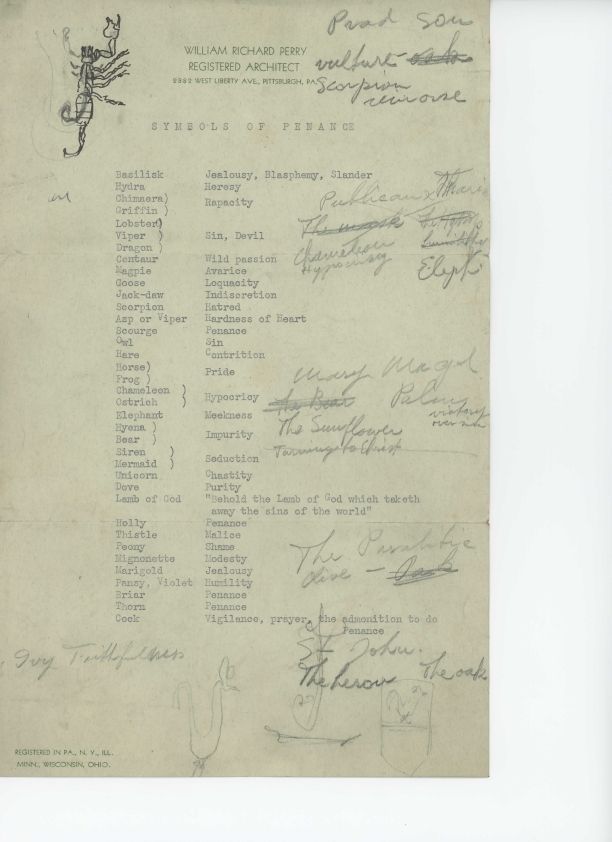 Prod Son
WILLIAM RICHARD PERRY
REGISTERED ARCHITECT
vulture oak
2382 WEST LIBERTY AVE., PITTSBURGH, PA.
Scorpion
remorse
SYMBOLS OF PENANCE
Basilisk Jealousy, Blasphemy, Slander
Hydra Heresy
Chimaera)
Griffin ) Rapacity
Publican &
Lobster)
Viper ) Sin, Devil
Dragon )
Chameleon
Hypocrisy
Eleph
Centaur Wild passion
Magpie Avarice
Goose Loquacity
Jack-daw Indiscretion
Scorpion Hatred
Asp or Viper Hardness of Heart
Scourge Penance
Owl Sin
Hare Contrition
Horse)
Frog ) Pride
Mary Magd
Chameleon )
Ostrich ) Hypocricy
The Bear Palm
victory
over sin
Elephant Meekness
The Sunflower
Hyena )
Bear ) Impurity
Turning to Christ
Siren )
Mermaid ) Seduction
Unicorn Chastity
Dove Purity
Lamb of God "Behold the Lamb of God which taketh
away the sins of the world"
Holly Penance
Thistle Malice
Peony Shame
The Paralitic
Mignonette Modesty
Marigold Jealousy
olive - Oak
Pansy, Violet Humility
Briar Penance
Thorn Penance
Cock Vigilance, prayer, the admonition to do
Penance
St John.
Ivy Faithfulness
The heron The oak
REGISTERED IN PA., N. Y., ILL.
MINN., WISCONSIN, OHIO.